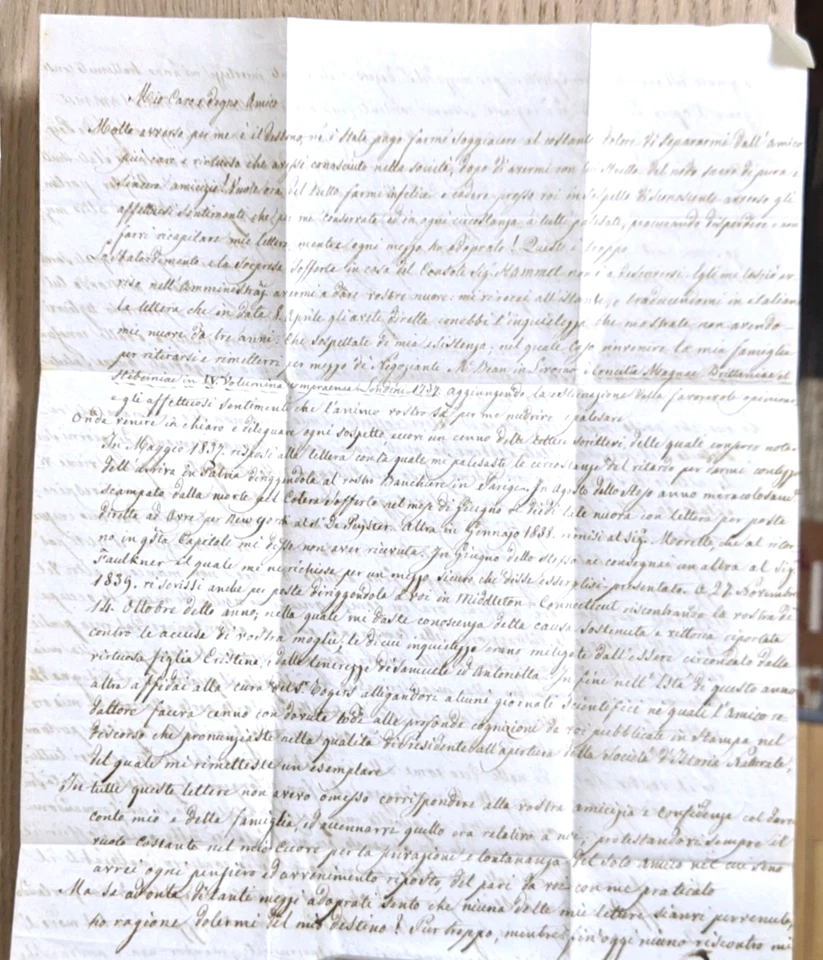 Mio Caro e degno Amico
Molto avverso per me è il destino, nè è stato pago farmi soggiacere al costante dolore di separarmi dall'Amico
più caro e virtuoso che avessi conosciuto nella società, dopo di avermi con lui stretto del nodo sacro di pura e
sincera amicizia! Vuole ora del tutto farmi infelice e cadere presso voi in sospetto di sconoscente avverso gli
affettuosi sentimenti che per me conservate ed in ogni circostanza a tutti palesati, procurando disperdere e non
farvi ricapitare mie lettere, mentre ogni mezzo ho adoprato! Questo è troppo
Sbalordimento e la sorpresa sofferta in casa del Console Sig. Hammett non è a descriversi. Egli mi lasciò av-
viso nell'Amministraz. avermi a dare vostre nuove: mi vi recai all'istante, e traducendomi in italiano
la lettera che in data 8. Aprile gli avete diretta conobbi l'inquietezza che mostrate non avendo
mie nuove da tre anni: che sospettate di mia esistenza; nel quale caso la mia famiglia
per ritirarsi e rimettervi per mezzo di Negoziante Mr Bean in Livorno i Concilia Magnae Brittaniae et
Hiberniae in IV. Volumina Londini 1737. aggiungendo la della favorevole opinione
e gli affettuosi sentimenti che l'animo vostro sa per me nudrire e palesare
Onde venire in chiaro e dileguare ogni sospetto, eccovi un cenno delle lettere scrittevi, delle quali conservo nota
In Maggio 1837. risposi alla lettera con la quale mi palesaste le circostanze del ritardo per darmi contezza
dell'arrivo in Patria dirigendola al vostro Banchiere in Parigi. In Agosto dello stesso anno miracolosame.
scampato dalla morte pel Colera sofferto nel mese di Giugno vi diedi tale nuova con lettera per posta
diretta ad Avre per New York al Sr. De Puyster. Altra in Gennajo 1838. rimisi al Sig. Moretto, che al ritor-
no in qsta Capitale mi disse non aver ricevuta. In Giugno dello stesso ne consegnai un altra al Sig.
Faulkner il quale me ne richiese per un mezzo sicuro che disse essergli si presentato. A 27. Novembre
1839. vi scrissi anche per posta dirigendola a voi in Middleton - Connecticut riscontrando la vostra de'
14. Ottobre detto anno, nella quale mi daste conoscenza della causa sostenuta e vittoria riportata
contro le accuse di vostra moglie, le di cui inquietezze erano mitigate dall'essere circondato dalla
virtuosa figlia Cristina, dalla tenerezza di Samuele ed Antonietta. In fine nell'Està di questo anno
altra affidai alla cura del Sr. Rogers alligandovi alcuni giornali scientifici ne' quali l'Amico re-
dattore faceva cenno con dovute lodi alle profonde cognizioni da voi pubblicate in stampa nel
discorso che pronunziaste nella qualità di Presidente all'apertura della Società d'Istoria Naturale,
del quale mi rimetteste un esemplare
In tutte queste lettere non avevo omesso corrispondere alla vostra amicizia e confidenza col darvi
conto mio e della famiglia, ed accennarvi quello era relativo a noi; protestandovi sempre il
vuoto costante nel mio cuore per la privazione e lontananza del solo amico nel cui seno
avrei ogni pensiero ed avvenimento riposto, del pari da voi con me praticato
Ma se ad onta di tanti mezzi adoprati sento che niuna delle mie lettere siavi pervenuta,
ho ragione dolermi del mio destino! Pur troppo, mentre fin'oggi niuno riscontro mi